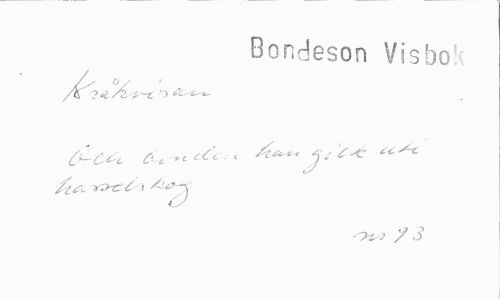 Bondeson Visbok
Kråkvisan
Och bonden han gick uti
hasselskog
nr 93